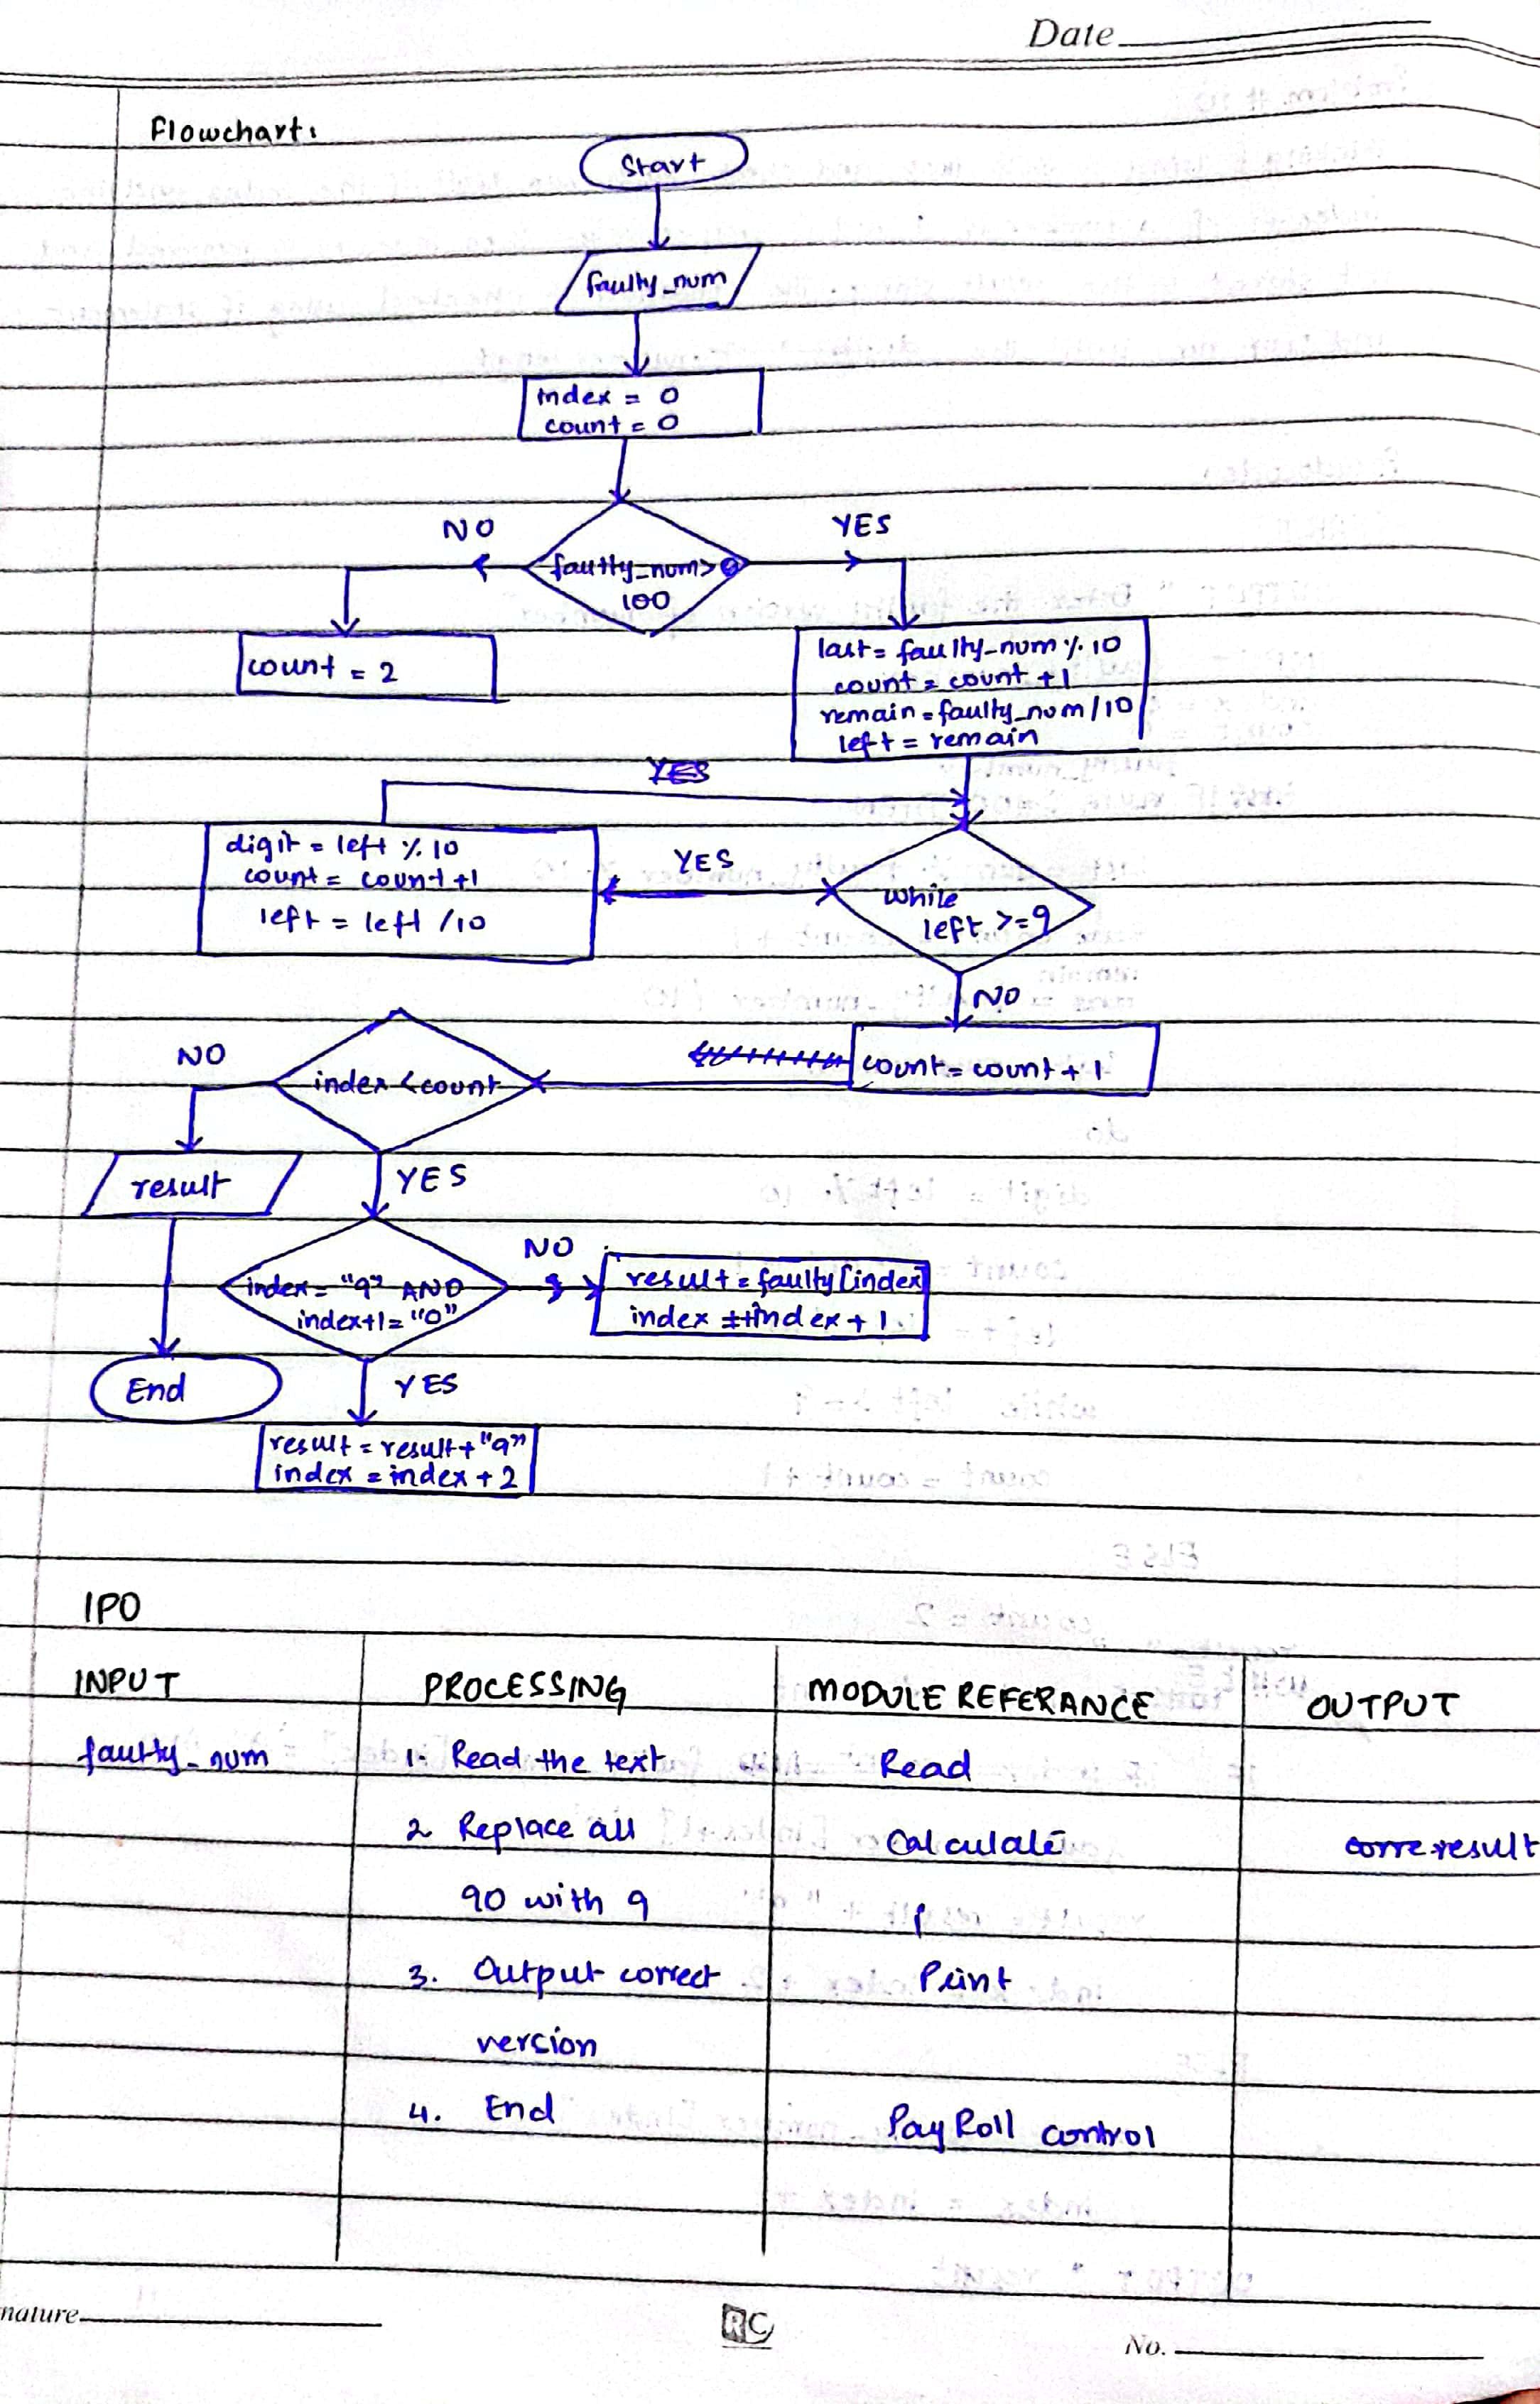 Date
Flowchart:
Start
faulty_num
index = 0
count = 0
NO
YES
faulty_num>
100
count = 2
last= faulty_num % 10
count = count +1
remain = faulty_num/10
left = remain
YES
digit = left % 10
count = count +1
left = left /10
YES
while
left >=9
NO
count = count + 1
NO
index <count
result
YES
index= "9" AND
index+1= "0"
NO
result = faulty[index]
index = index + 1
End
YES
result = result + "9"
index = index + 2
IPO
INPUT
PROCESSING
MODULE REFERANCE
OUTPUT
faulty_num
1. Read the text
Read
2. Replace all
Calculate
result
90 with 9
3. Output correct
Print
version
4. End
PayRoll control
nature
RC
No.